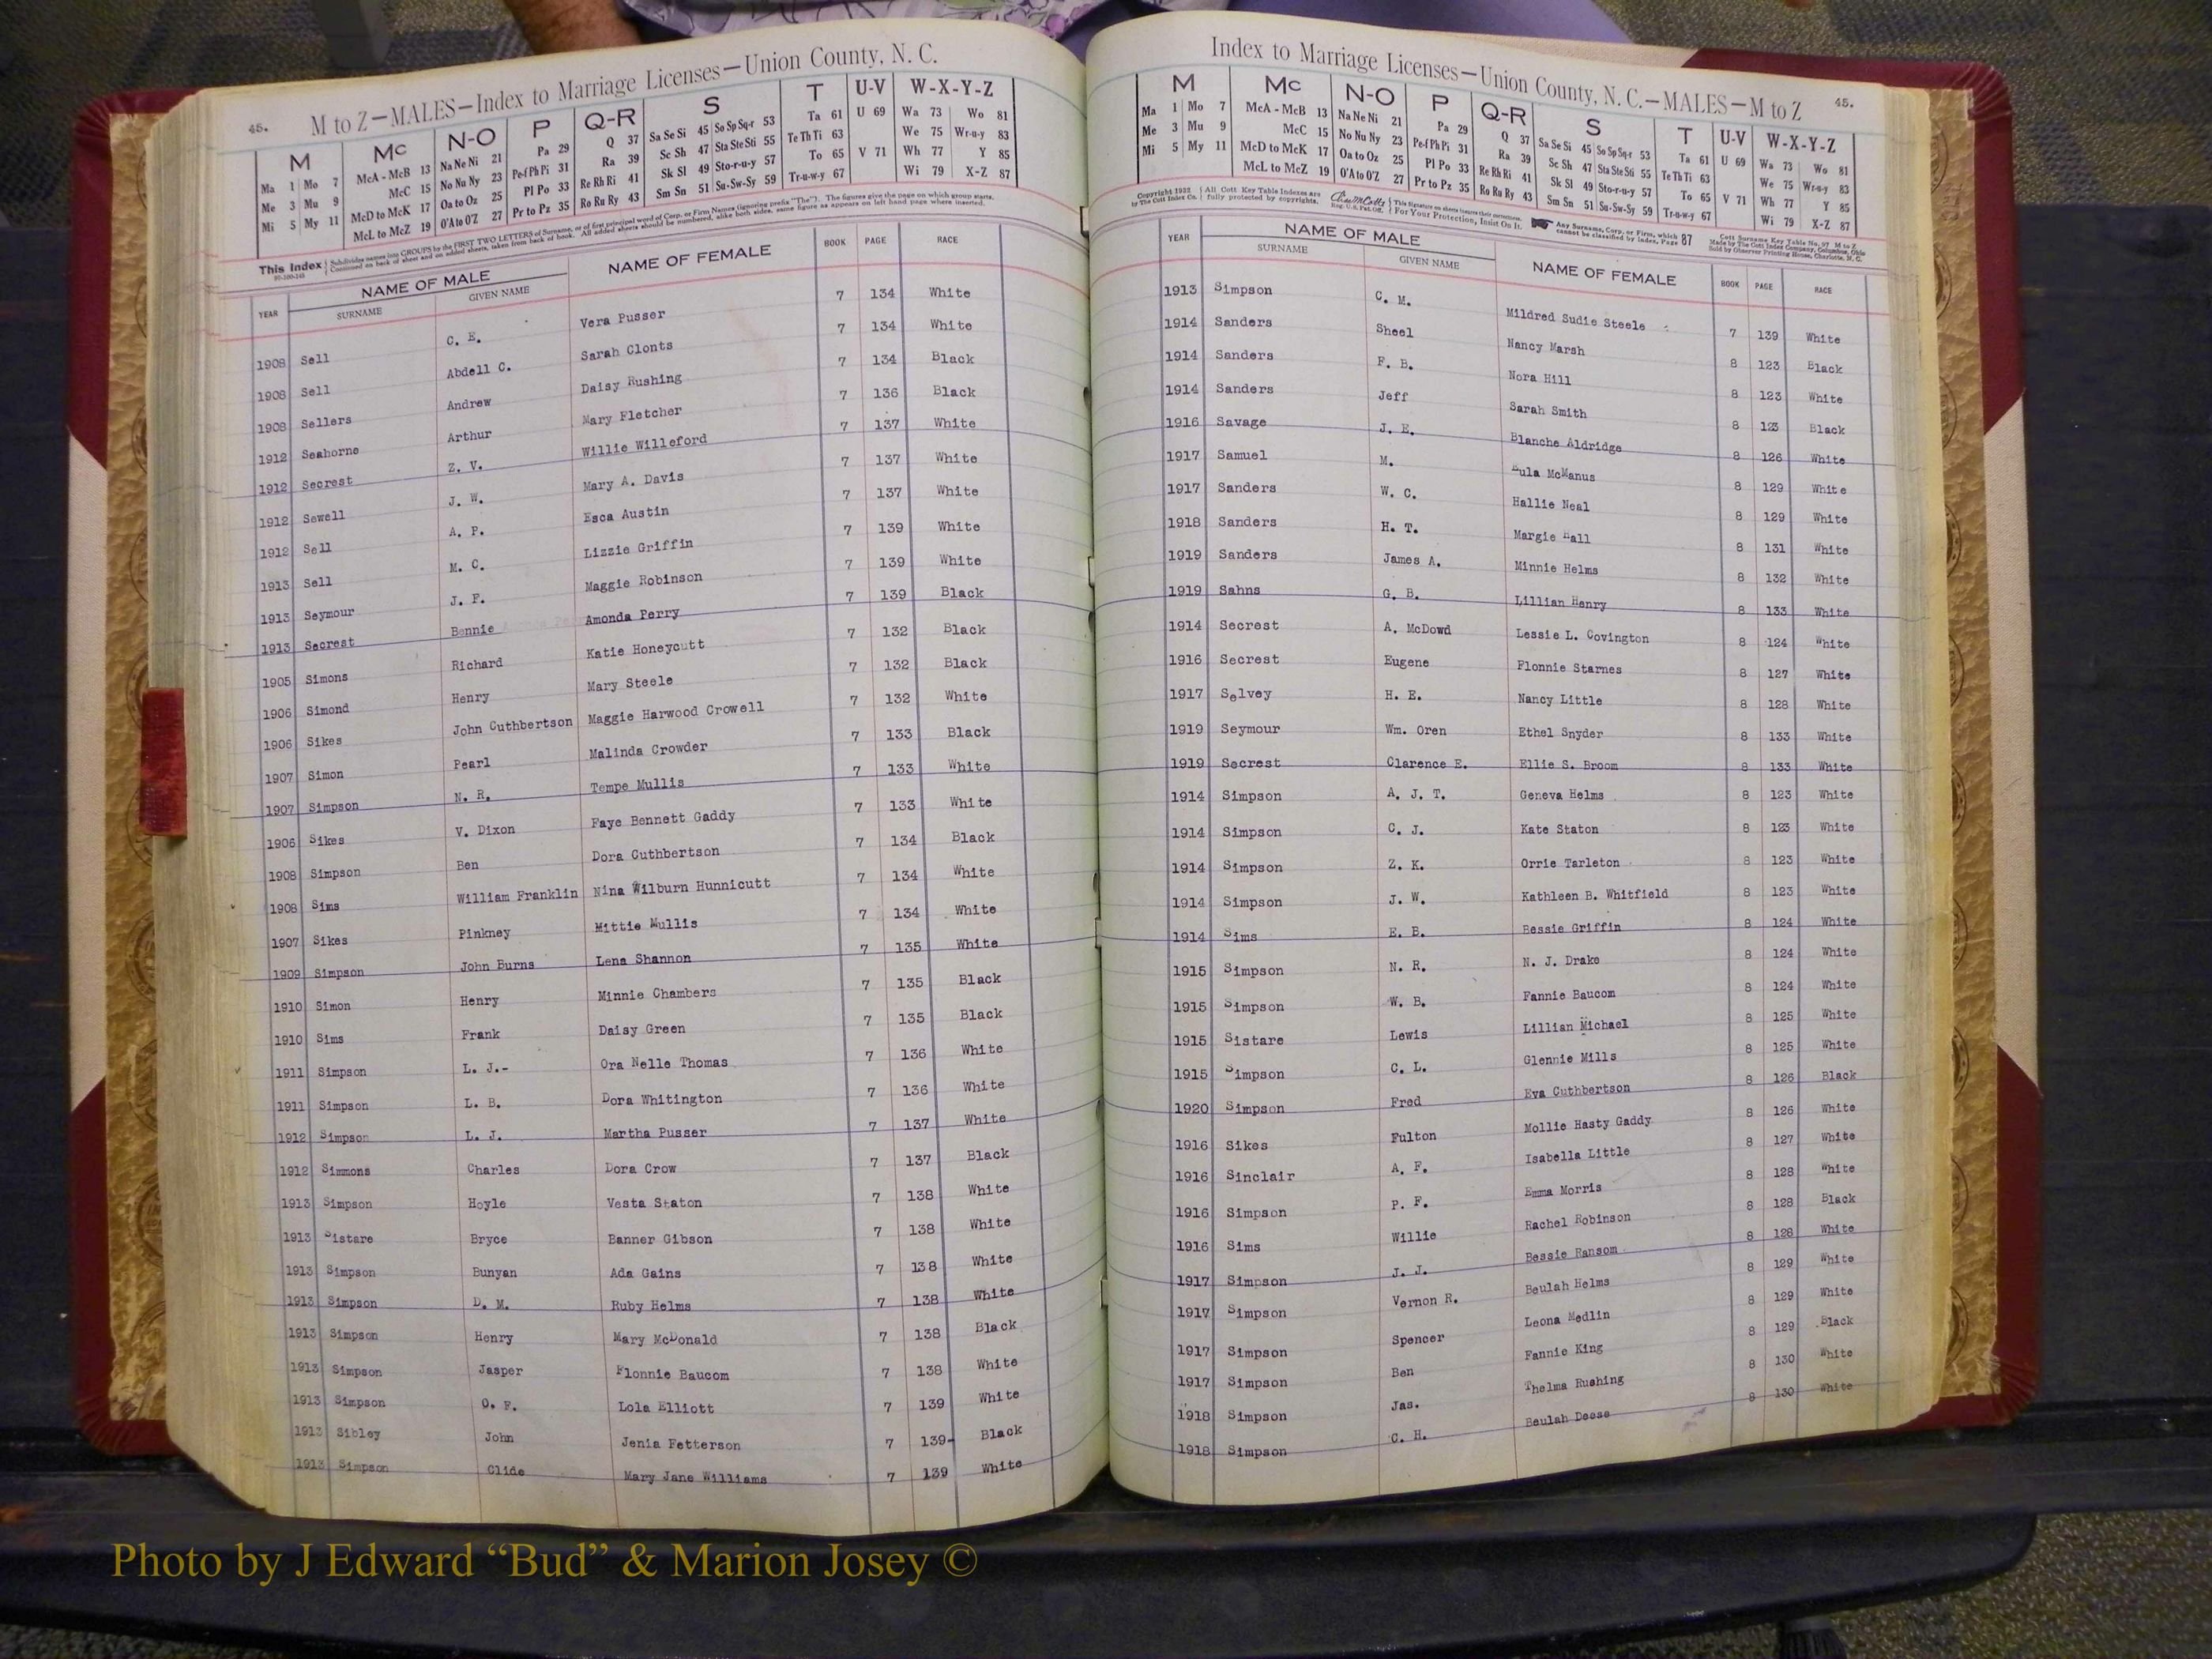 Index to Marriage Licenses—Union County, N. C.
45. M to Z—MALES—Index to Marriage Licenses—Union County, N. C.
M Mc N-O P Q-R S T U-V W-X-Y-Z
Ma 1 Mo 7 McA - McB 13 Na Ne Ni 21 Pa 29 Q 37 Sa Se Si 45 So Sp Sq-r 53 Ta 61 U 69 Wa 73 Wo 81
Me 3 Mu 9 McC 15 No Nu Ny 23 Pe-f Ph Pi 31 Ra 39 Sc Sh 47 Sta Ste Sti 55 Te Th Ti 63 We 75 Wr-u-y 83
Mi 5 My 11 McD to McK 17 Oa to Oz 25 Pl Po 33 Re Rh Ri 41 Sk Sl 49 Sto-r-u-y 57 To 65 V 71 Wh 77 Y 85
McL to McZ 19 O'A to O'Z 27 Pr to Pz 35 Ro Ru Ry 43 Sm Sn 51 Su-Sw-Sy 59 Tr-u-w-y 67 Wi 79 X-Z 87
This Index Subdivides names into GROUPS by the FIRST TWO LETTERS of Surname, or of first principal word of Corp. or Firm Names (ignoring prefix "The"). The figures give the page on which group starts.
Continued on back of sheet and on added sheets, taken from back of book. All added sheets should be numbered, alike both sides, same figure as appears on left hand page where inserted.
YEAR NAME OF MALE NAME OF FEMALE BOOK PAGE RACE
SURNAME GIVEN NAME
1908 Sell C. E. Vera Pusser 7 134 White
1908 Sell Abdell C. Sarah Clonts 7 134 White
1908 Sellers Andrew Daisy Rushing 7 134 Black
1912 Seahorne Arthur Mary Fletcher 7 136 Black
1912 Secrest Z. V. Willie Willeford 7 137 White
1912 Sewell J. W. Mary A. Davis 7 137 White
1912 Sell A. P. Esca Austin 7 137 White
1913 Sell M. C. Lizzie Griffin 7 139 White
1913 Seymour J. F. Maggie Robinson 7 139 White
1913 Secrest Bennie Amonda Perry 7 139 Black
1905 Simons Richard Katie Honeycutt 7 132 Black
1906 Simond Henry Mary Steele 7 132 Black
1906 Sikes John Cuthbertson Maggie Harwood Crowell 7 132 White
1907 Simon Pearl Malinda Crowder 7 133 Black
1907 Simpson N. R. Tempe Mullis 7 133 White
1906 Sikes V. Dixon Faye Bennett Gaddy 7 133 White
1908 Simpson Ben Dora Cuthbertson 7 134 Black
1908 Sims William Franklin Nina Wilburn Hunnicutt 7 134 White
1907 Sikes Pinkney Mittie Mullis 7 134 White
1909 Simpson John Burns Lena Shannon 7 135 White
1910 Simon Henry Minnie Chambers 7 135 Black
1910 Sims Frank Daisy Green 7 135 Black
1911 Simpson L. J.- Ora Nelle Thomas 7 136 White
1911 Simpson L. B. Dora Whitington 7 136 White
1912 Simpson L. J. Martha Pusser 7 137 White
1912 Simmons Charles Dora Crow 7 137 Black
1913 Simpson Hoyle Vesta Staton 7 138 White
1913 Sistare Bryce Banner Gibson 7 138 White
1913 Simpson Bunyan Ada Gains 7 138 White
1913 Simpson D. M. Ruby Helms 7 138 White
1913 Simpson Henry Mary McDonald 7 138 Black
1913 Simpson Jasper Flonnie Baucom 7 138 White
1913 Simpson O. F. Lola Elliott 7 139 White
1913 Sibley John Jenia Fetterson 7 139- Black
1913 Simpson Clide Mary Jane Williams 7 139 White
Index to Marriage Licenses—Union County, N. C.—MALES—M to Z 45.
M Mc N-O P Q-R S T U-V W-X-Y-Z
Ma 1 Mo 7 McA - McB 13 Na Ne Ni 21 Pa 29 Q 37 Sa Se Si 45 So Sp Sq-r 53 Ta 61 U 69 Wa 73 Wo 81
Me 3 Mu 9 McC 15 No Nu Ny 23 Pe-f Ph Pi 31 Ra 39 Sc Sh 47 Sta Ste Sti 55 Te Th Ti 63 We 75 Wr-u-y 83
Mi 5 My 11 McD to McK 17 Oa to Oz 25 Pl Po 33 Re Rh Ri 41 Sk Sl 49 Sto-r-u-y 57 To 65 V 71 Wh 77 Y 85
McL to McZ 19 O'A to O'Z 27 Pr to Pz 35 Ro Ru Ry 43 Sm Sn 51 Su-Sw-Sy 59 Tr-u-w-y 67 Wi 79 X-Z 87
Copyright 1922 All Cott Key Table Indexes are This signature on sheets insures their correctness. Any Surname, Corp. or Firm, which Cott Surname Key Table No. 97 M to Z
by The Cott Index Co. fully protected by copyrights. Reg. U.S. Pat. Off. For Your Protection, Insist On It. cannot be classified by Index, Page 87 Made by The Cott Index Company, Columbus, Ohio
Sold by Observer Printing House, Charlotte, N. C.
YEAR NAME OF MALE NAME OF FEMALE BOOK PAGE RACE
SURNAME GIVEN NAME
1913 Simpson C. M. Mildred Sudie Steele 7 139 White
1914 Sanders Sheel Nancy Marsh 8 123 Black
1914 Sanders F. B. Nora Hill 8 123 White
1914 Sanders Jeff Sarah Smith 8 123 Black
1916 Savage J. E. Blanche Aldridge 8 126 White
1917 Samuel M. Eula McManus 8 129 White
1917 Sanders W. C. Hallie Neal 8 129 White
1918 Sanders H. T. Margie Hall 8 131 White
1919 Sanders James A. Minnie Helms 8 132 White
1919 Sahns G. B. Lillian Henry 8 133 White
1914 Secrest A. McDowd Lessie L. Covington 8 124 White
1916 Secrest Eugene Flonnie Starnes 8 127 White
1917 Selvey H. E. Nancy Little 8 128 White
1919 Seymour Wm. Oren Ethel Snyder 8 133 White
1919 Secrest Clarence E. Ellie S. Broom 8 133 White
1914 Simpson A. J. T. Geneva Helms 8 123 White
1914 Simpson C. J. Kate Staton 8 123 White
1914 Simpson Z. K. Orrie Tarleton 8 123 White
1914 Simpson J. W. Kathleen B. Whitfield 8 123 White
1914 Sims E. B. Bessie Griffin 8 124 White
1915 Simpson N. R. N. J. Drake 8 124 White
1915 Simpson W. B. Fannie Baucom 8 124 White
1915 Sistare Lewis Lillian Michael 8 125 White
1915 Simpson C. L. Glennie Mills 8 125 White
1920 Simpson Fred Eva Cuthbertson 8 126 Black
1916 Sikes Fulton Mollie Hasty Gaddy 8 126 White
1916 Sinclair A. F. Isabella Little 8 127 White
1916 Simpson P. F. Emma Morris 8 128 White
1916 Sims Willie Rachel Robinson 8 128 Black
1917 Simpson J. J. Bessie Ransom 8 128 White
1917 Simpson Vernon R. Beulah Helms 8 129 White
1917 Simpson Spencer Leona Medlin 8 129 White
1917 Simpson Ben Fannie King 8 129 Black
1918 Simpson Jas. Thelma Rushing 8 130 White
1918 Simpson C. H. Beulah Deese 8 130 White
Photo by J Edward “Bud” & Marion Josey ©